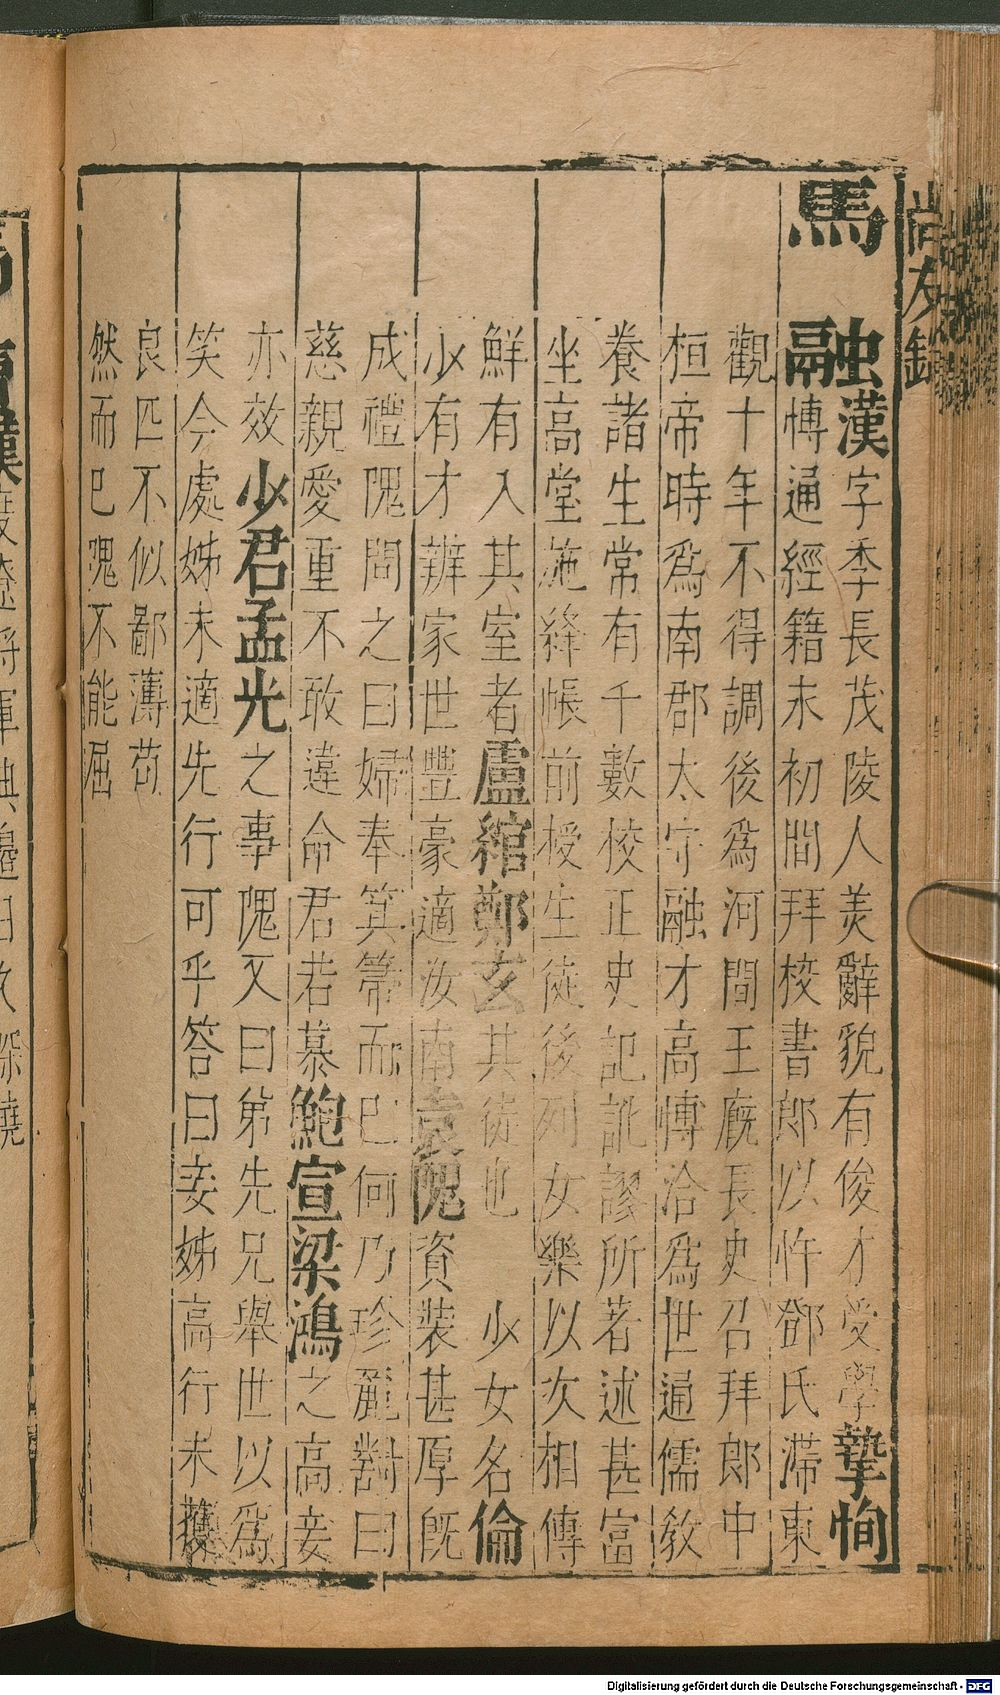 尚友錄
馬
融漢字季長茂陵人美辭貌有俊才受學摯恂
愽通經籍末初間拜校書郎以忤鄧氏滯東
觀十年不得調後爲河間王廐長史召拜郎中
桓帝時爲南郡太守融才高愽洽爲世通儒敎
養諸生常有千數校正史記訛謬所著述甚富
坐高堂施絳帳前授生徒後列女樂以次相傳
鮮有入其室者盧綰鄭玄其徒也　少女名倫
少有才辨家世豐豪適汝南袁隗資裝甚厚旣
成禮隗問之曰婦奉箕箒而已何乃珍麗對曰
慈親愛重不敢違命君若慕鮑宣梁鴻之高妾
亦效少君孟光之事隗又曰弟先兄舉世以爲
笑今處姊未適先行可乎答曰妾姊高行未獲
良匹不似鄙薄苟
然而已隗不能屈
Digitalisierung gefördert durch die Deutsche Forschungsgemeinschaft - DFG